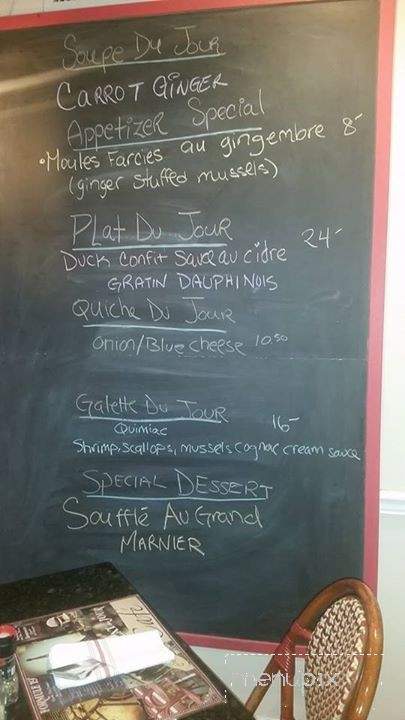 Soupe Du Jour
CARROT GINGER
Appetizer Special
•Moules Farcies au gingembre 8-
(ginger stuffed mussels)
PLat Du Jour
24-
Duck Confit Sauce au cidre
GRATIN DAUPHINOIS
Quiche Du Jour
Onion/Blue cheese 10.50
Galette Du Jour
Quimiac 16-
Shrimp, scallops, mussels cognac cream sauce
SPECIAL DESSERT
Soufflé Au Grand
MARNIER
menupix